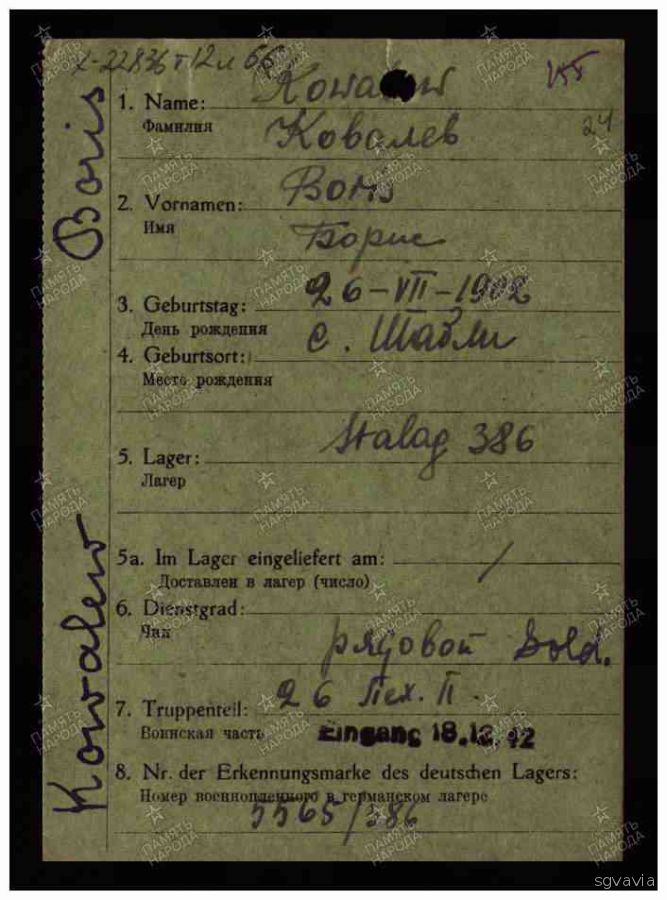 х-22836 т 12 л 66
155
24
Boris
Kowalew
1. Name: Kowalew
Фамилия
Ковалев
2. Vornamen: Boris
Имя
Борис
3. Geburtstag: 26-VII-1902
День рождения
4. Geburtsort: с. Шабли
Место рождения
5. Lager: Stalag 386
Лагер
5a. Im Lager eingeliefert am: /
Доставлен в лагер (число)
6. Dienstgrad:
Чин
рядовой Sold.
7. Truppenteil: 26 Пех. П.
Воинская часть
Eingang 18.12.42
8. Nr. der Erkennungsmarke des deutschen Lagers:
Номер военнопленного в германском лагере
5565/386
ПАМЯТЬ НАРОДА
sgvavia